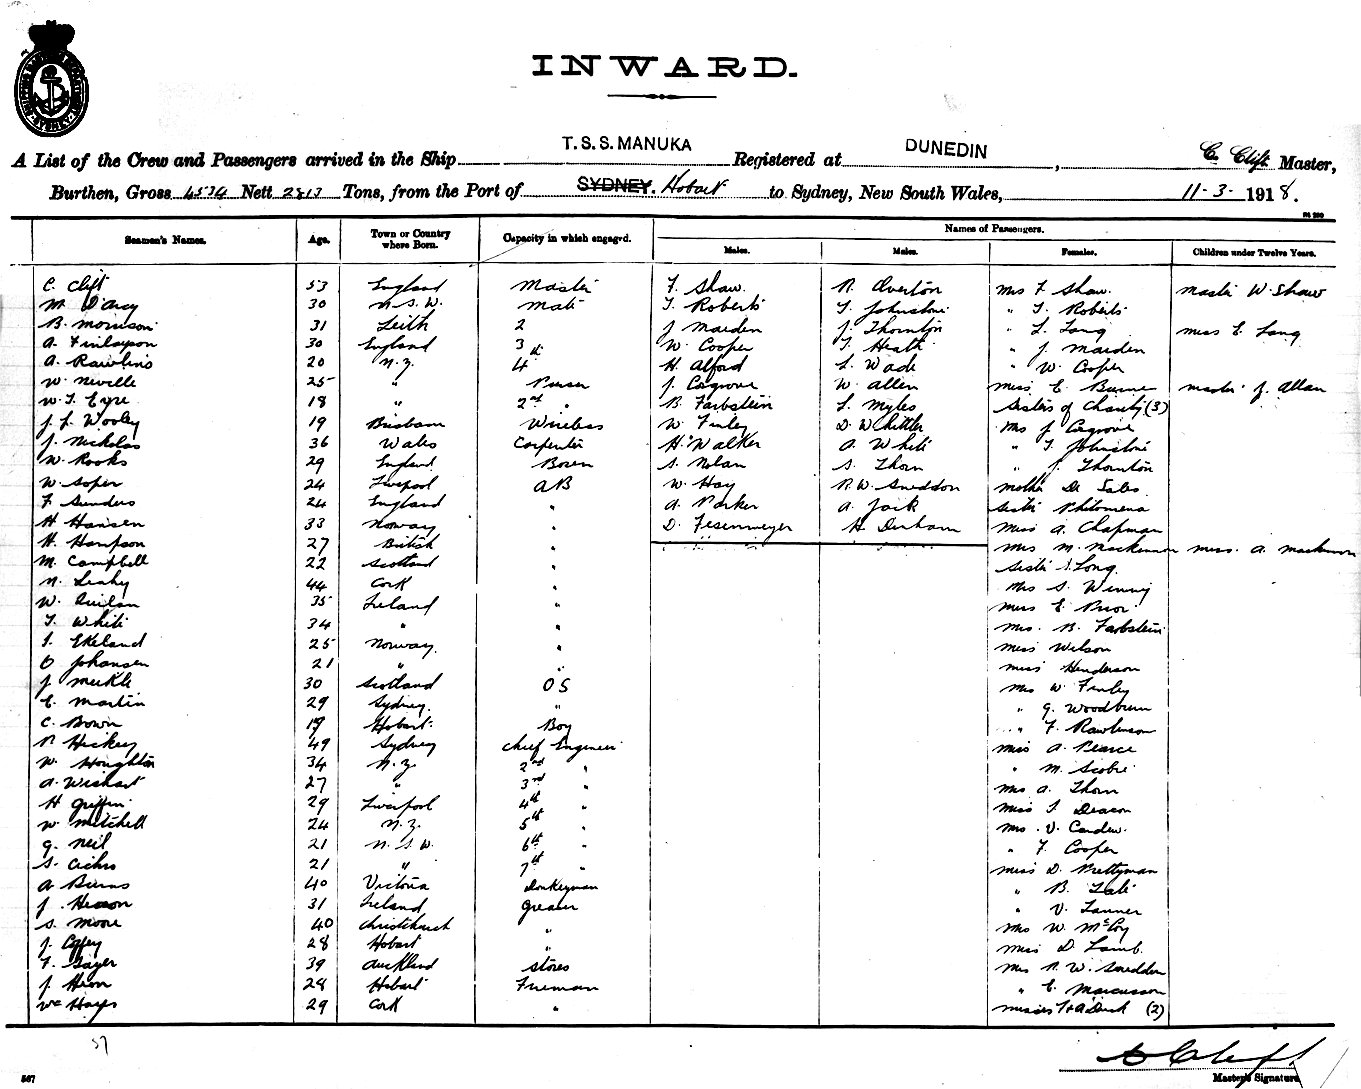 INWARD.
A List of the Crew and Passengers arrived in the Ship T.S.S. MANUKA Registered at DUNEDIN, C. Clift Master,
Burthen, Gross 4534 Nett 2813 Tons, from the Port of SYDNEY. Hobart to Sydney, New South Wales, 11-3-1918.
Names of Passengers.
Seamen's Names. Age. Town or Country where Born. Capacity in which engaged. Males. Males. Females. Children under Twelve Years.
C. Clift 53 England Master F. Shaw. R. Overton Mrs F. Shaw. Master W Shaw
M D'Arcy 30 N.S.W. Mate T. Roberts T. Johnstone " T. Roberts
B. Morrison 31 Leith 2 J Marden J. Thornton " L. Lang Miss E. Lang
A. Finlayson 30 England 3 W. Cooper T. Heath " J. Marden
A. Rawlins 20 N.Z. 4th H. Alford L. Wade " W. Cooper
W. Neville 25 " Purser J. Cosgrove W. Allen Miss E. Master J. Allan
W. T. Eyre 18 " 2nd " B. Farbstein L. Myles Sisters of Charity (3)
J. L. Wooley 19 Brisbane Wireless W. Finley D. Whittle Mrs J Cosgrove
J. Nicholas 36 Wales Carpenter H. Walker A. White " T. Johnstone
W. Rooks 29 England Bosun S. Nolan S. Thorn " J. Thornton
W. Soper 24 Liverpool AB W. Hay R.W. Sneddon Mother De Sales
F. Sunders 24 England " A. Parker A. Jack Sister Philomena
H Hansen 33 Norway " D. Fesenmeyer H. Denham Miss A. Chapman
H. Hampson 27 British " Mrs M. Mackennon Miss. A. Mackennon
M. Campbell 22 Scotland " Sister S. Long.
N. Leahy 44 Cork " Mrs S. Winny
W. Quilan 35 Ireland " Miss E. Prior
T. White 34 " " Mrs. B. Farbstein
I. Ekeland 25 Norway. " Miss Wilson
O Johansen 21 " " Miss Henderson
J. Meikle 30 Scotland OS Mrs W. Finley
E. Martin 29 Sydney. " " G. Woodburn
C. Bown 19 Hobart. Boy " F. Rawlinson
P. Hickey 49 Sydney Chief Engineer Miss A. Pearce
W. Houghton 34 N.Z. 2nd " " M. Scobie
A. Wishart 27 " 3rd " Mrs A. Thorn
H Griffin 29 Liverpool 4th " Miss I. Deacon
W Mitchell 24 N.Z. 5th " Mrs. V. Cardew.
G. Neil 21 N.S.W. 6th " " F. Cooper
S. 21 " 7th " Miss D. Prettyman
A Burns 40 Victoria Donkeyman " B.
J. 31 Ireland Greaser " V. Tanner
S. Moore 40 Christchurch " Mrs W. McCoy
J. Coffey 28 Hobart " Miss D. Lamb.
T. Gayer 39 Auckland Stores Mrs R. W. Sneddon
J Heron 28 Hobart Fireman " E. Marcusson
Wm Hayes 29 Cork " Misses (2)
37
C Clift
Master's Signature.
567